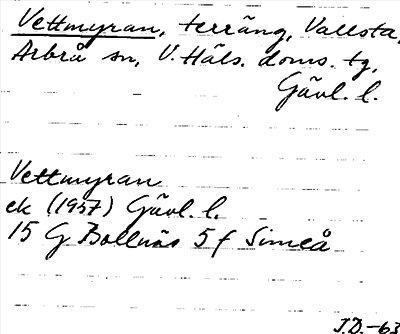 Vettmyran, terräng, Vallsta,
Arbrå sn, V. Häls. doms. tg,
Gävl. l.
Vettmyran
ek (1957) Gävl. l.
15 G Bollnäs 5 f Simeå
J.D.-63